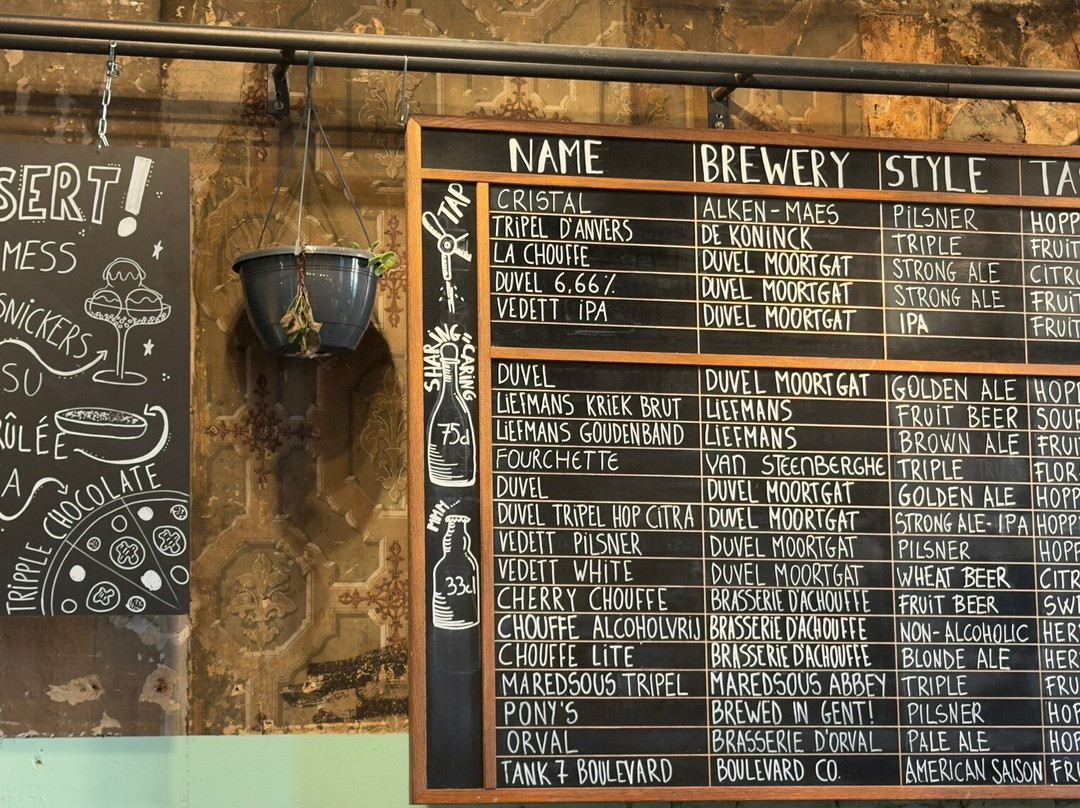 SERT!
MESS
SNICKERS
SU
RÛLÉE
A
TRIPPLE CHOCOLATE
NAME BREWERY STYLE TA
TAP
CRISTAL ALKEN-MAES PILSNER HOPP
TRIPEL D'ANVERS DE KONINCK TRIPLE FRUIT
LA CHOUFFE DUVEL MOORTGAT STRONG ALE CITRU
DUVEL 6,66% DUVEL MOORTGAT STRONG ALE FRUIT
VEDETT IPA DUVEL MOORTGAT IPA FRUIT
SHARING "CARING
75cl
DUVEL DUVEL MOORTGAT GOLDEN ALE HOPP
LIEFMANS KRIEK BRUT LIEFMANS FRUIT BEER SOUR
LIEFMANS GOUDENBAND LIEFMANS BROWN ALE FRUI
FOURCHETTE VAN STEENBERGHE TRIPLE FLOR
MMM
33cl
DUVEL DUVEL MOORTGAT GOLDEN ALE HOPP
DUVEL TRIPEL HOP CITRA DUVEL MOORTGAT STRONG ALE-IPA HOPP
VEDETT PILSNER DUVEL MOORTGAT PILSNER HOPP
VEDETT WHITE DUVEL MOORTGAT WHEAT BEER CITR
CHERRY CHOUFFE BRASSERIE D'ACHOUFFE FRUIT BEER SWE
CHOUFFE ALCOHOLVRIJ BRASSERIE D'ACHOUFFE NON-ALCOHOLIC HER
CHOUFFE LITE BRASSERIE D'ACHOUFFE BLONDE ALE HER
MAREDSOUS TRIPEL MAREDSOUS ABBEY TRIPLE FRU
PONY'S BREWED IN GENT! PILSNER HOP
ORVAL BRASSERIE D'ORVAL PALE ALE HOP
TANK 7 BOULEVARD BOULEVARD CO. AMERICAN SAISON FRU